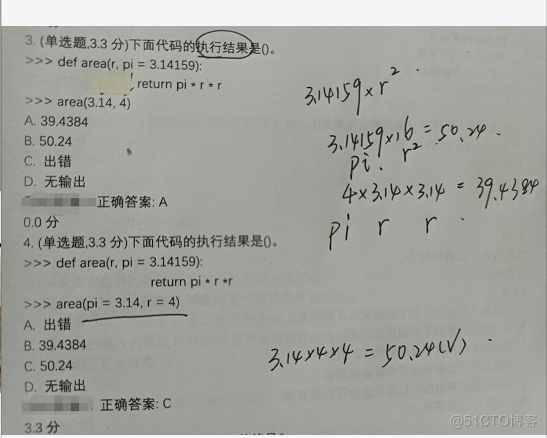 3. (单选题,3.3 分)下面代码的执行结果是()。
>>> def area(r, pi = 3.14159):
return pi * r * r
>>> area(3.14, 4)
A. 39.4384
B. 50.24
C. 出错
D. 无输出
正确答案: A
0.0 分
4. (单选题,3.3 分)下面代码的执行结果是()。
>>> def area(r, pi = 3.14159):
return pi * r *r
>>> area(pi = 3.14, r = 4)
A. 出错
B. 39.4384
C. 50.24
D. 无输出
正确答案: C
3.3 分
3.14159×r²
3.14159×16=50.24.
pi. r²
4×3.14×3.14=39.4384
pi r r.
3.14×4×4=50.24(√).
@51CTO博客